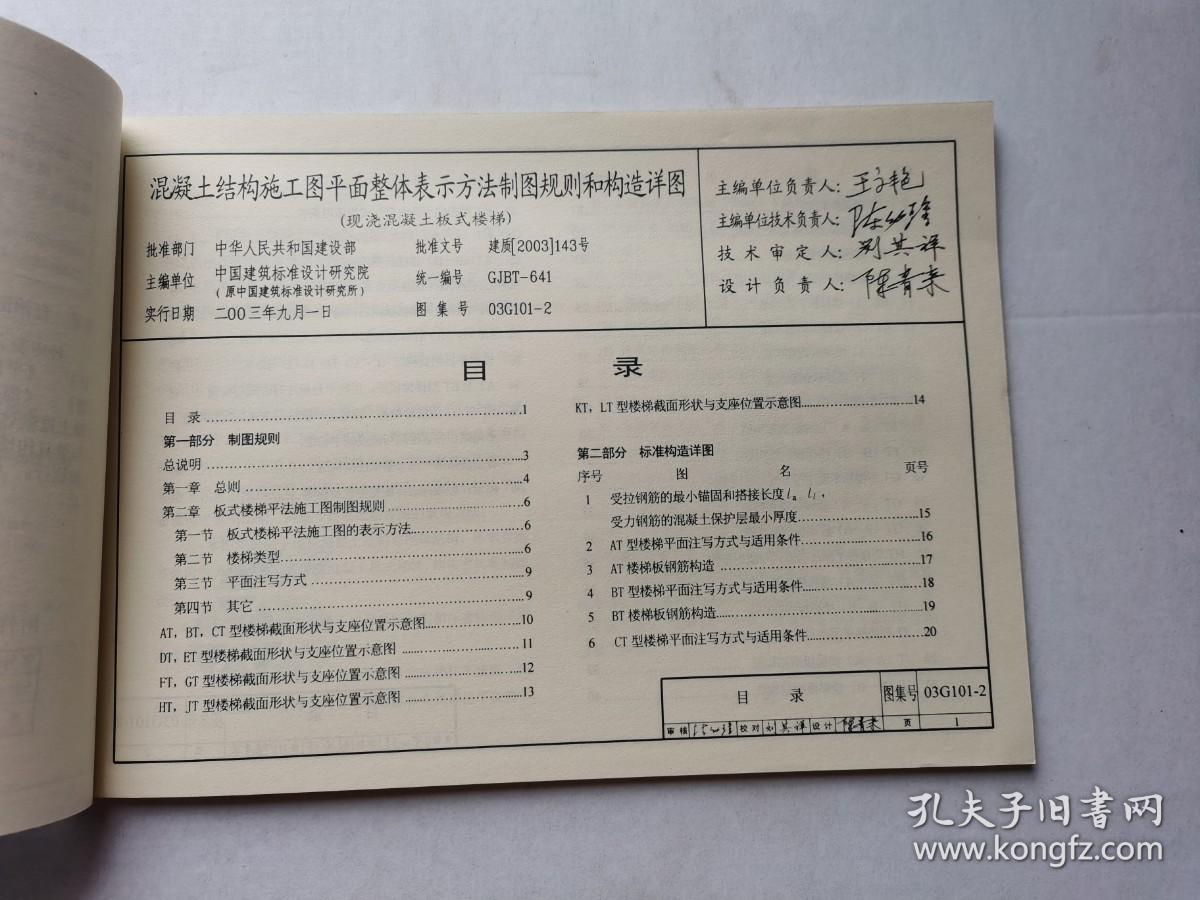 混凝土结构施工图平面整体表示方法制图规则和构造详图
(现浇混凝土板式楼梯)
批准部门 中华人民共和国建设部 批准文号 建质[2003]143号
主编单位 中国建筑标准设计研究院 统一编号 GJBT-641
(原中国建筑标准设计研究所)
实行日期 二00三年九月一日 图集号 03G101-2
主编单位负责人:
主编单位技术负责人:
技术审定人: 刘其祥
设计负责人: 陈青来
目 录
目 录 1
第一部分 制图规则
总说明 3
第一章 总则 4
第二章 板式楼梯平法施工图制图规则 6
第一节 板式楼梯平法施工图的表示方法 6
第二节 楼梯类型 6
第三节 平面注写方式 9
第四节 其它 9
AT, BT, CT型楼梯截面形状与支座位置示意图 10
DT, ET型楼梯截面形状与支座位置示意图 11
FT, GT型楼梯截面形状与支座位置示意图 12
HT, JT型楼梯截面形状与支座位置示意图 13
KT, LT型楼梯截面形状与支座位置示意图 14
第二部分 标准构造详图
序号 图 名 页号
1 受拉钢筋的最小锚固和搭接长度la、ll,
受力钢筋的混凝土保护层最小厚度 15
2 AT型楼梯平面注写方式与适用条件 16
3 AT楼梯板钢筋构造 17
4 BT型楼梯平面注写方式与适用条件 18
5 BT楼梯板钢筋构造 19
6 CT型楼梯平面注写方式与适用条件 20
目 录 图集号 03G101-2
审核 校对 刘其祥 设计 陈青来 页 1
孔夫子旧书网
www.kongfz.com